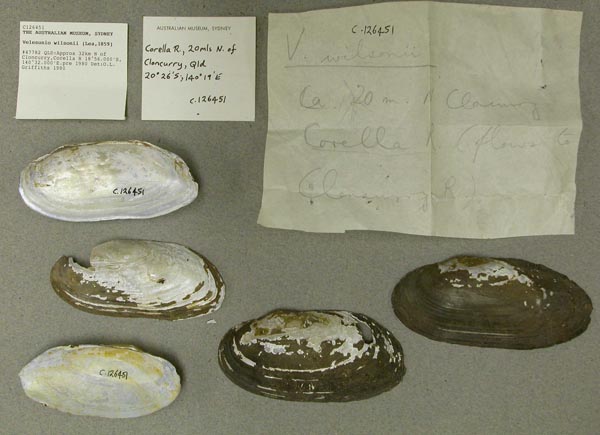 C126451
THE AUSTRALIAN MUSEUM, SYDNEY
Velesunio wilsonii (Lea,1859)
Qld:Approx 32km N of
Cloncurry, Corella R 18°56.000'S,
140°32.000'E.pre 1980 Det:O.L.
Griffiths 1991
AUSTRALIAN MUSEUM, SYDNEY
Corella R, 20mls N. of
Cloncurry, Qld
20°26'S; 140°19'E
C.126451
C.126451
V. wilsonii
Ca 20 m. N Cloncurry
Corella R (flows to
Cloncurry R
C.126451
C.126451